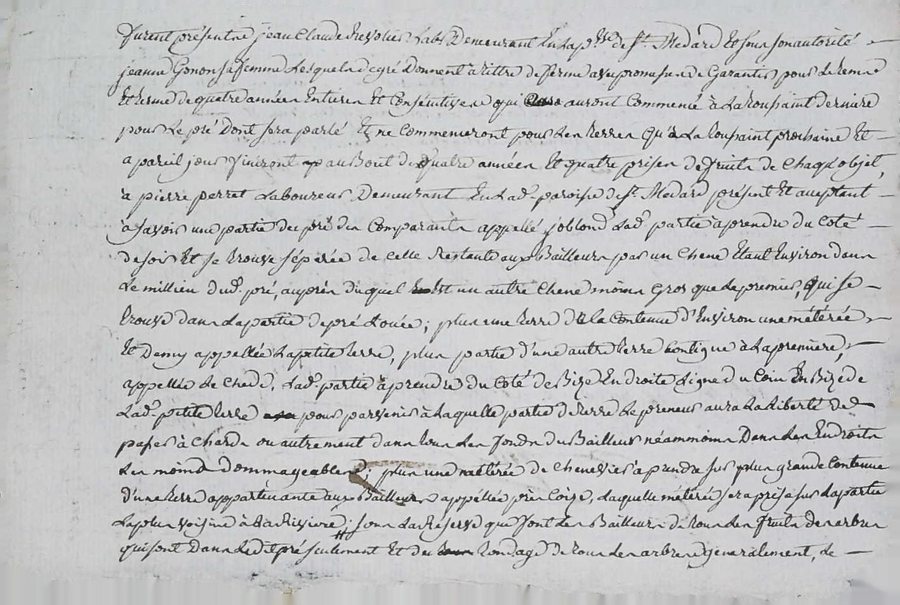 furent présentre jean Claude Revolier Labr Demeurant En La p.sse de St. Medard Et sous son autorité
jeanne Gonon sa femme Lesquels de gré Donnent a titre de ferme avec promesse de Garantir pour Le tems
Et terme de quatre années Entieres Et Consécutives qui auront Commencé à La toussaint derniere
pour Le pré Dont sera parlé Et ne Commenceront pour Les terres Qu'à La toussaint prochaine Et
a pareil jour finiront au Bout de quatre années Et quatre prises de fruits de Chaqu'objet,
à pierre perret Laboureur Demeurant En Lad. paroisse de St. Medard présent Et acceptant
à savoir une partie du pré des Comparants appellé joblond Lad. partie a prendre du Coté
de soir Et se trouve séparée de celle Restante aux Bailleurs par un Chene Etant Environ dans
Le millieu dud. pré, auprès duquel Est un autre Chene moins gros que Le premier, Qui se
trouve dans La partie de pré Louée; plus une terre de La Contenue d'Environ une métérée
Et Demy appellée La petite terre, plus partie d'une autre terre Contigue à La premiere,
appellée Le Chade, Lad. partie à prendre du Coté de Bize En droite Ligne du Coin En Bize de
Lad. petite terre pour parvenir à Laquelle partie de terre Le preneur aura La Liberté de
passer à Chards ou autrement dans tous Les fonds du Bailleur néammoins Dans Les Endroits
Les moins Dommageables; plus une métérée de Chenevier a prendre sur plus grande Contenue
d'une terre appartenante aux Bailleurs appellée pré Coize, Laquelle métérée sera prise sur La partie
La plus voisine à La Riviere; sous La Réserve que font Les Bailleurs de tous Les fruits des arbres
qui sont Dans Le dit pré seulement Et du tondage de tous Les arbres généralement, de